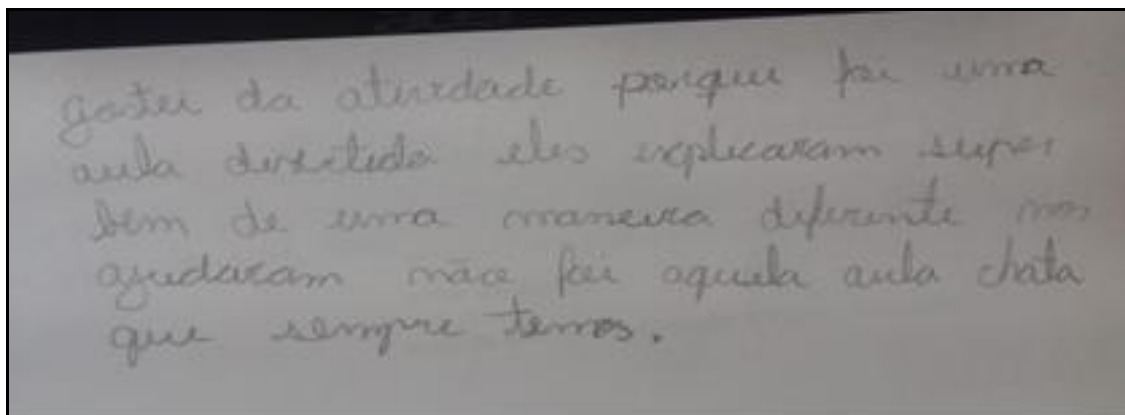 gostei da atividade porque foi uma
aula divertida eles explicaram super
bem de uma maneira diferente nos
ajudaram não foi aquela aula chata
que sempre temos.